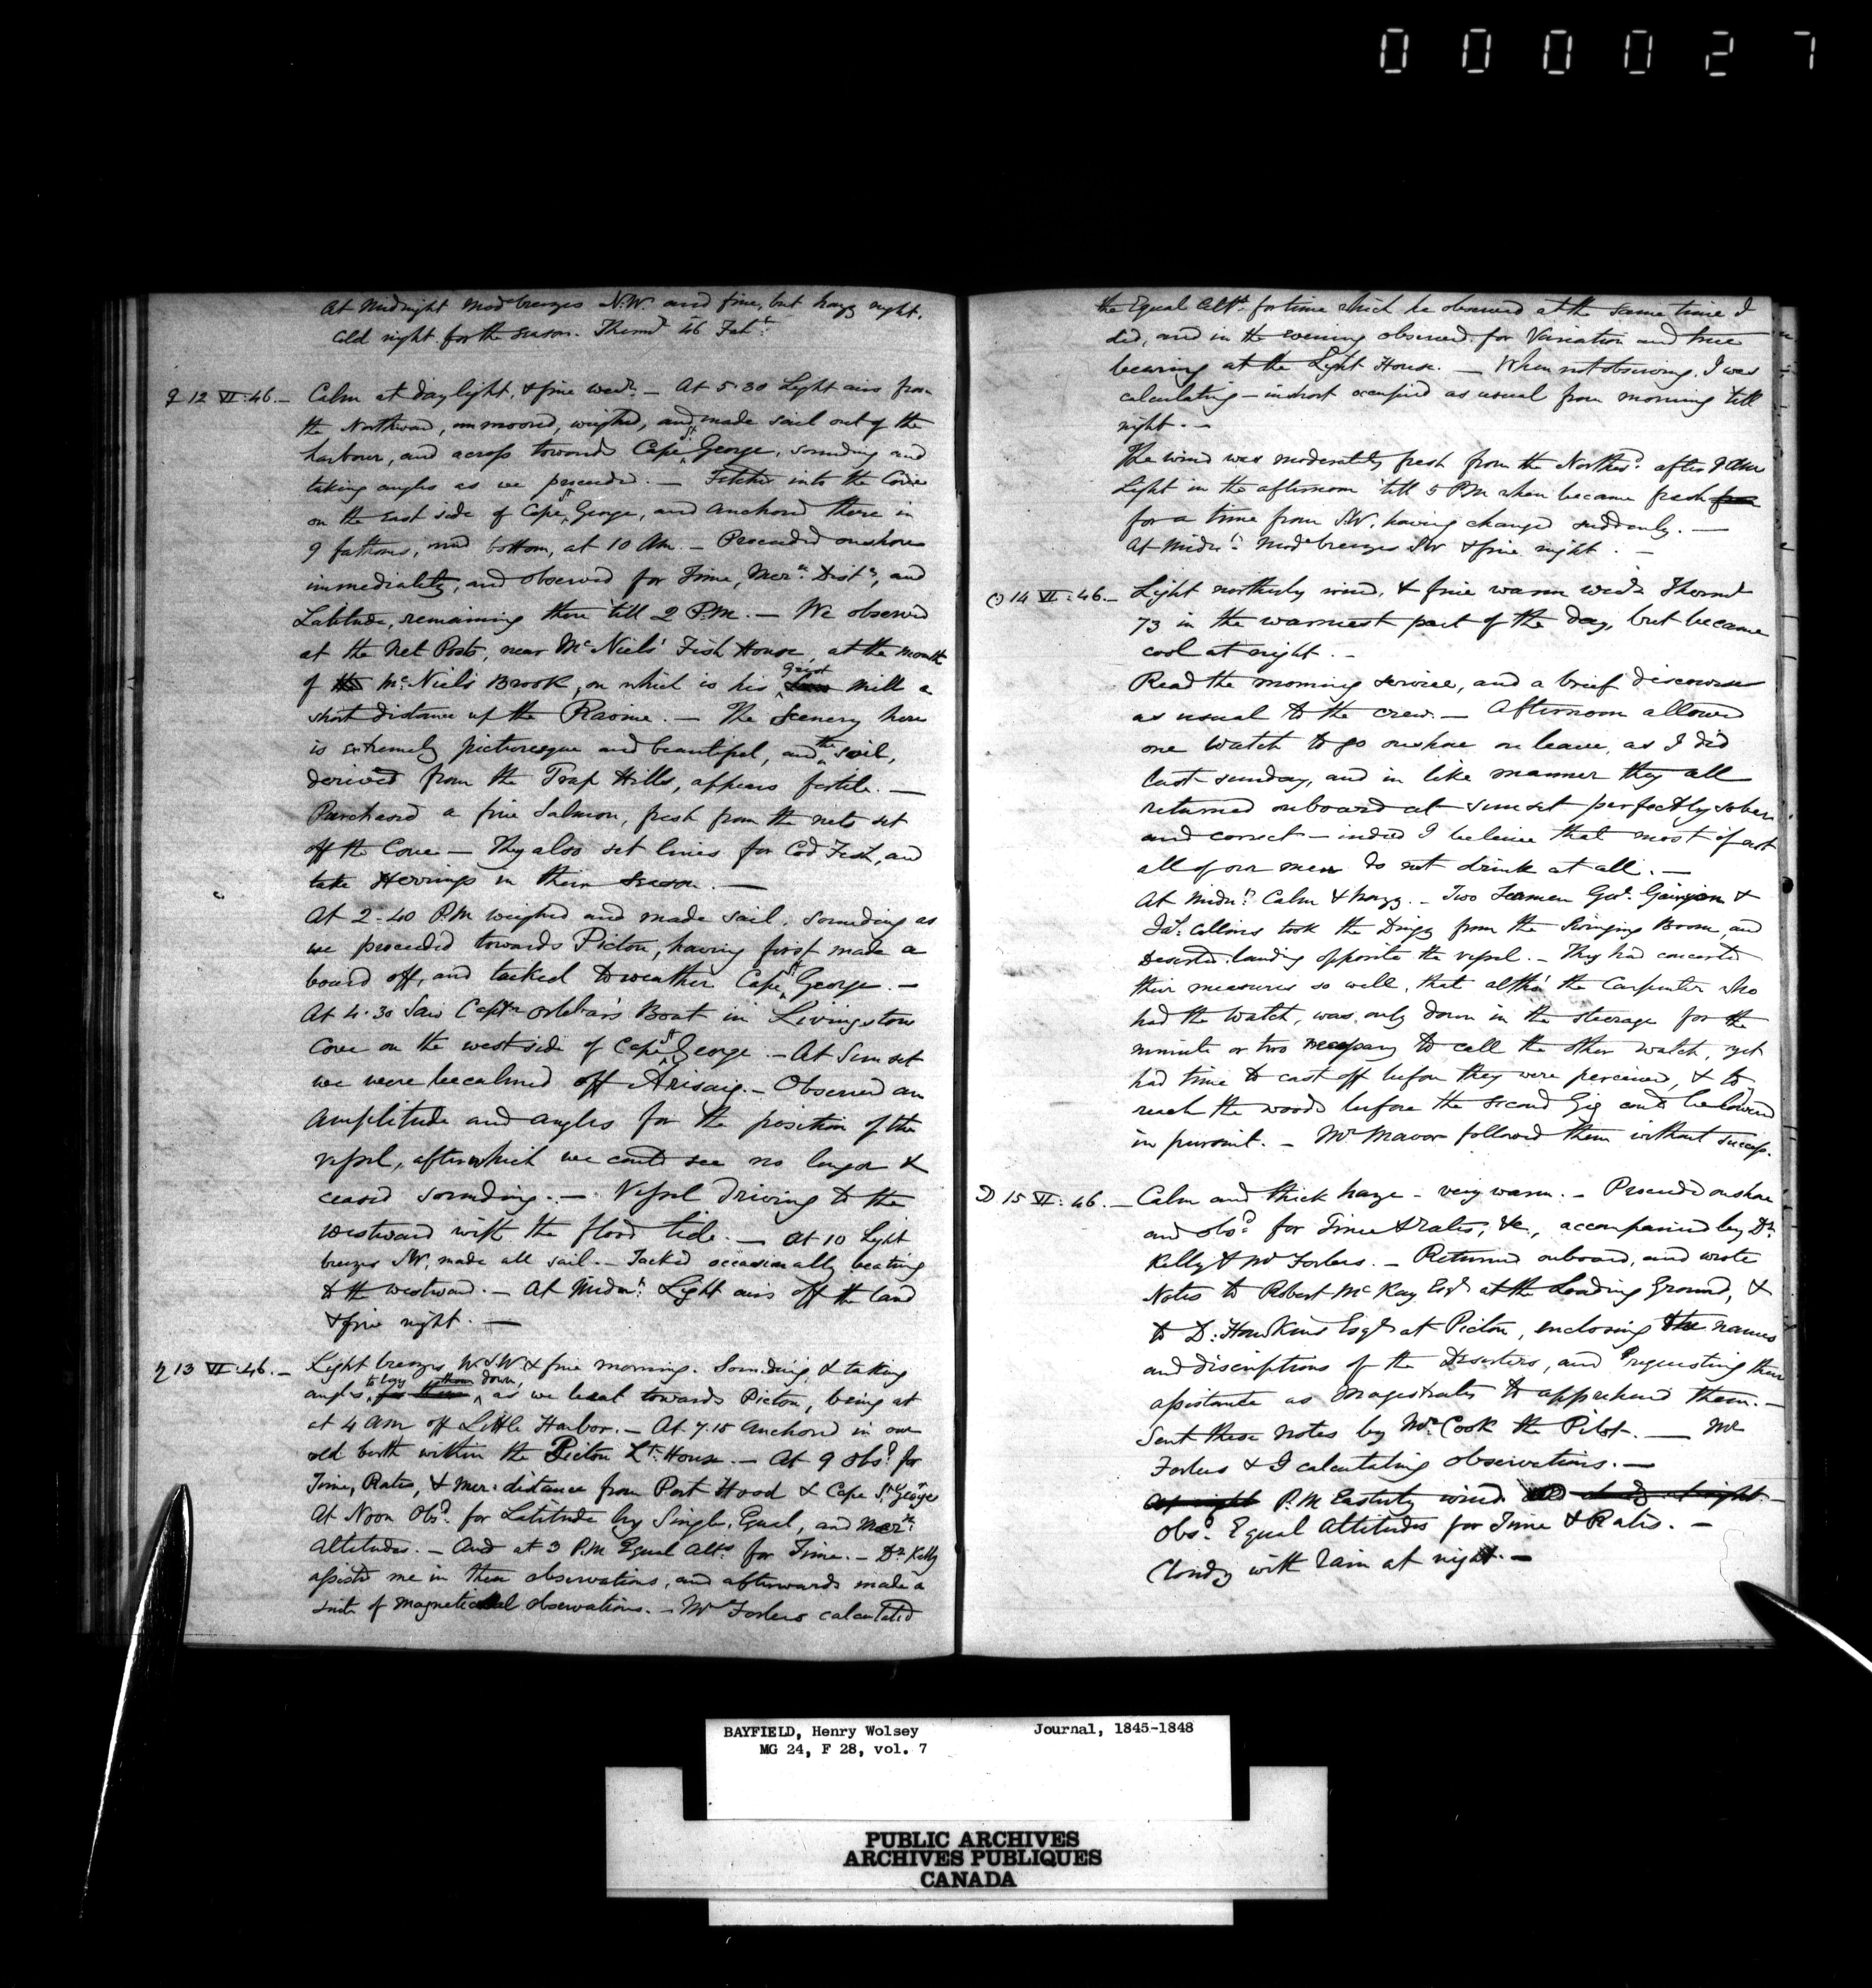 000027
At Midnight Modᵉ breezes N.W. and fine, but hazy night.
Cold night for the season. Thermʳ 46 Fahᵗ.
♀ 12 VI:46.— Calm at daylight, & fine weaʳ. — At 5.30 Light airs from
the Northward, unmoored, weighed, and made sail out of the
harbour, and across towards Cape Sᵗ George, sounding and
taking angles as we proceeded. — Fetched into the Cove
on the East side of Cape Sᵗ George, and anchored there in
9 fathoms, mud bottom, at 10 AM. — Proceeded onshore
immediately, and observed for Time, Merⁿ. Distᵉ, and
Latitude, remaining there till 2 P.M. — We observed
at the Net Posts, near McNiels' Fish House, at the mouth
of McNiel's Brook, on which is his grist mill a
short distance up the Ravine. — The Scenery here
is extremely picturesque and beautiful, and the soil,
derived from the Trap Hills, appears fertile. —
Purchased a fine Salmon, fresh from the nets set
off the Cove — They also set lines for Cod Fish, and
take Herrings in their season. —
At 2.40 P.M weighed and made sail, sounding as
we proceeded towards Pictou, having first made a
board off, and tacked to weather Cape Sᵗ George. —
At 4.30 Saw Captⁿ Orlebar's Boat in Livingston
Cove on the west side of Cape Sᵗ George. — At Sunset
we were becalmed off Arisaig. — Observed an
Amplitude and angles for the position of the
vessel, after which we could see no longer &
ceased sounding. — Vessel driving to the
Westward with the flood tide. — At 10 Light
breezes SW, made all sail. — Tacked occasionally beating
to the westward. — At Midnᵗ. Light airs off the land
& fine night. —
♄ 13 VI:46.— Light breezes W.S.W. & fine morning. Sounding & taking
angles, to lay them down, as we beat towards Pictou, being at
at 4 AM off Little Harbor. — At 7.15 Anchored in our
old berth within the Pictou Lᵗ. House. — At 9 Obsᵈ. for
Time, Rates, & Mer: distance from Port Hood & Cape Sᵗ George
At Noon Obsᵈ. for Latitude by Single, Equal, and Merⁿ.
Altitudes. — And at 3 P.M Equal Altˢ for Time. — Dʳ. Kelly
assisted me in these observations, and afterwards made a
suite of magnetical observations. — Mʳ Forbes calculated
the Equal Altˢ. for time which he observed at the same time I
did, and in the evening observed for Variation and true
bearing at the Light House. — When not observing, I was
calculating — in short occupied as usual from morning till
night. —
The wind was moderately fresh from the Northᵈ. after 9 AM
Light in the afternoon 'till 5 PM when became fresh
for a time from S.W. having changed suddenly. —
At Midnᵗ. Modᵉ breezes SW & fine night. —
☉ 14 VI:46.— Light northerly wind, & fine warm weaʳ Thermʳ
73 in the warmest part of the day, but became
cool at night. —
Read the morning service, and a brief discourse
as usual to the crew. — Afternoon allowed
one watch to go onshore on leave, as I did
last sunday, and in like manner they all
returned onboard at sunset perfectly sober
and correct — indeed I believe that most if not
all of our men do not drink at all. —
At Midnᵗ. Calm & hazy. — Two Seamen Geoᵉ. &
Jaˢ. Collins took the Dingy from the Swinging Boom, and
Deserted landing opposite the vessel. — They had concerted
their measures so well, that altho' the Carpenter who
had the Watch, was only down in the steerage for the
minute or two necessary to call the other watch, yet
had time to cast off before they were perceived, & to
reach the woods before the second Gig could be lowered
in pursuit. — Mʳ Mavor followed them without success.
☽ 15 VI:46.— Calm and thick haze — very warm. — Proceeded onshore
and obsᵈ for Time & rates, &c, accompanied by Dʳ.
Kelly & Mʳ Forbes. — Returned onboard, and wrote
Notes to Robert McKay Esqʳ at the Loading Ground, &
to D. Hawkins Esqʳ at Pictou, enclosing the names
and discriptions of the Deserters, and requesting their
assistance as Magistrates to apprehend them. —
Sent these Notes by Mʳ Cook the Pilot. — Mʳ
Forbes & I calculating observations. —
At night P.M Easterly wind and cloudy at night —
Obsᵈ. Equal Altitudes for Time & Rates. —
Cloudy with Rain at night. —
BAYFIELD, Henry Wolsey Journal, 1845-1848
MG 24, F 28, vol. 7
PUBLIC ARCHIVES
ARCHIVES PUBLIQUES
CANADA